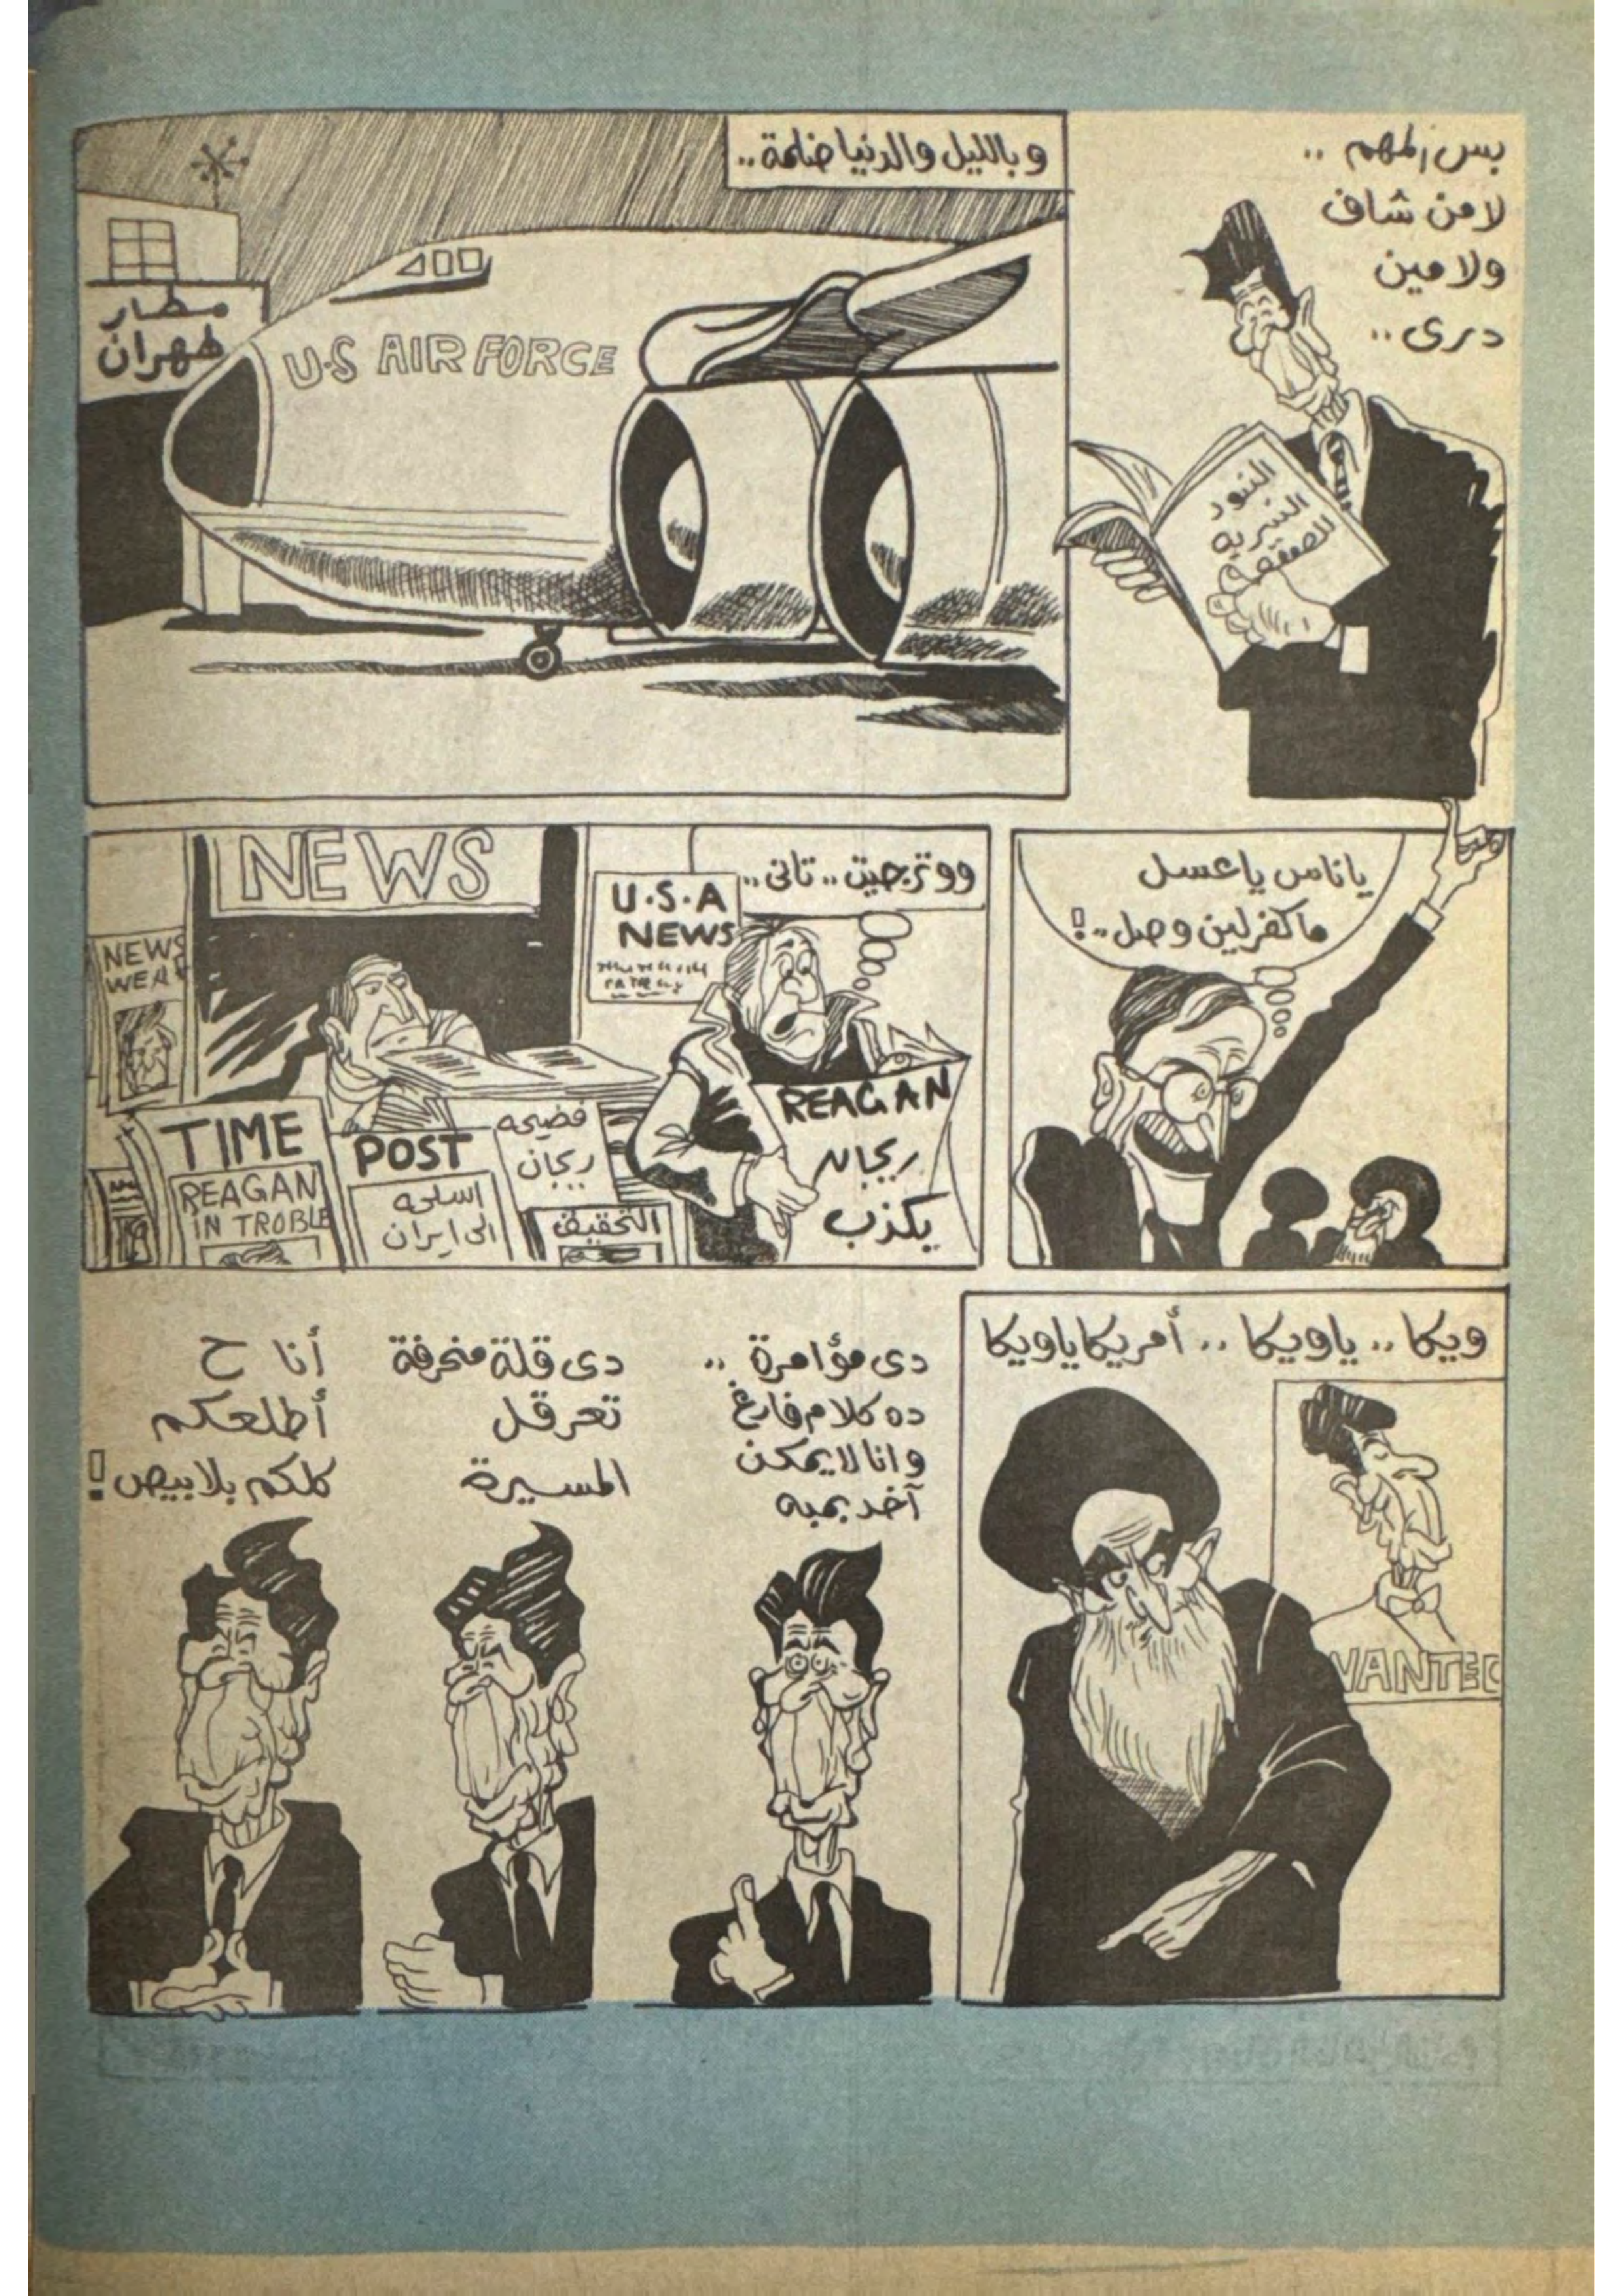 بس المهم ..
لا من شاف
ولا مين
درى ..
البنود
السرية
للصفقة
وبالليل والدنيا ضلمة ..
مطار
طهران
U.S AIR FORCE
يا ناس يا عسل
ماكفرلين وصل ..!
ووترجيت .. تانى ..
NEWS
U.S.A
NEWS
NEWS
WEA
REAGAN
ريجان
يكذب
TIME
REAGAN
IN TROBLE
POST
اسلحه
الى ايران
فضيحه
ريجان
التحقيق
ويكا .. ياويكا .. أمريكا ياويكا
WANTED
دى مؤامرة ..
ده كلام فارغ
وانا لا يمكن
آخد بمبه
دى قلة منحرفة
تعرقل
المسيرة
أنا ح
أطلعكم
كلكم بلابيص!